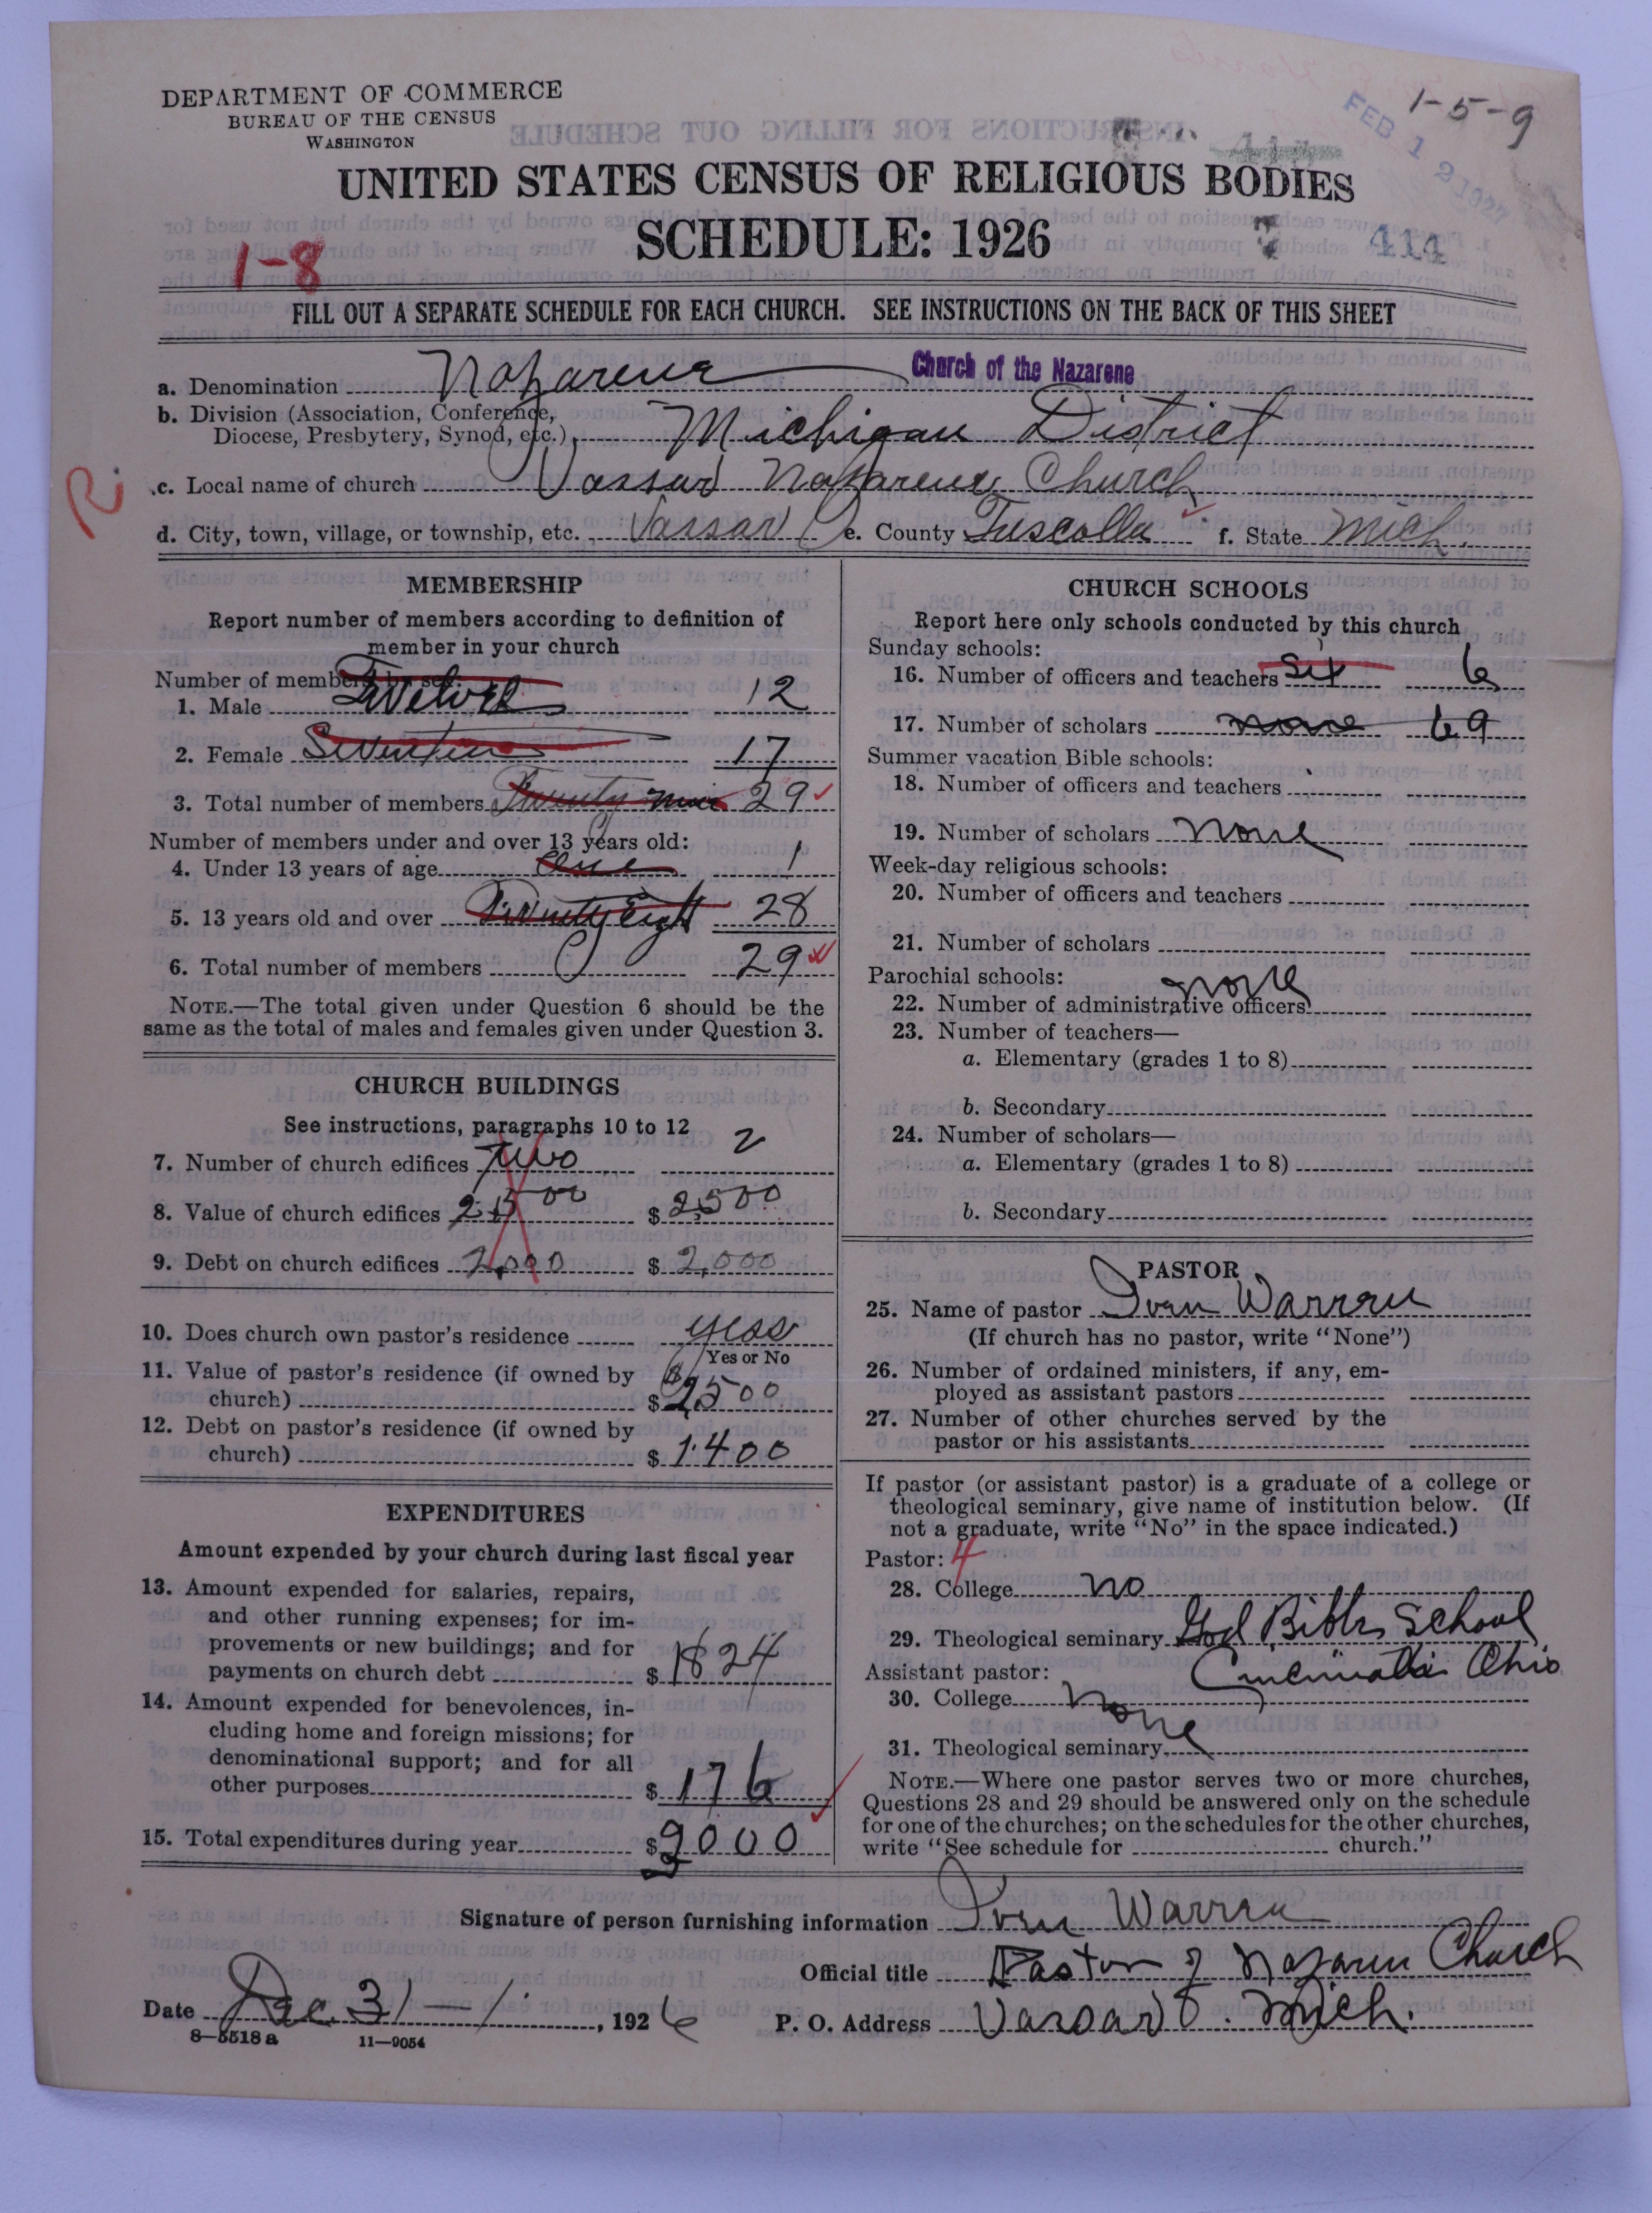 DEPARTMENT OF COMMERCE
BUREAU OF THE CENSUS
WASHINGTON
1-5-9
FEB 12 1927
UNITED STATES CENSUS OF RELIGIOUS BODIES
SCHEDULE: 1926
414
1-8
FILL OUT A SEPARATE SCHEDULE FOR EACH CHURCH. SEE INSTRUCTIONS ON THE BACK OF THIS SHEET
a. Denomination Nazarene Church of the Nazarene
b. Division (Association, Conference,
Diocese, Presbytery, Synod, etc.) Michigan District
R.
c. Local name of church Vassar Nazarene Church
d. City, town, village, or township, etc. Vassar e. County Tuscolla f. State Mich.
MEMBERSHIP
Report number of members according to definition of
member in your church
Number of members by sex:
1. Male Twelve 12
2. Female Seventeen 17
3. Total number of members Twenty nine 29
Number of members under and over 13 years old:
4. Under 13 years of age One 1
5. 13 years old and over Twenty Eight 28
6. Total number of members 29
NOTE.—The total given under Question 6 should be the
same as the total of males and females given under Question 3.
CHURCH BUILDINGS
See instructions, paragraphs 10 to 12
7. Number of church edifices Two 2
8. Value of church edifices 2500 $2500
9. Debt on church edifices 2,000 $2,000
10. Does church own pastor's residence yess
Yes or No
11. Value of pastor's residence (if owned by
church) $2500
12. Debt on pastor's residence (if owned by
church) $1400
EXPENDITURES
Amount expended by your church during last fiscal year
13. Amount expended for salaries, repairs,
and other running expenses; for im-
provements or new buildings; and for
payments on church debt $1824
14. Amount expended for benevolences, in-
cluding home and foreign missions; for
denominational support; and for all
other purposes $176
15. Total expenditures during year $2000
CHURCH SCHOOLS
Report here only schools conducted by this church
Sunday schools:
16. Number of officers and teachers Six 6
17. Number of scholars none 69
Summer vacation Bible schools:
18. Number of officers and teachers
19. Number of scholars none
Week-day religious schools:
20. Number of officers and teachers
21. Number of scholars
Parochial schools:
none
22. Number of administrative officers
23. Number of teachers—
a. Elementary (grades 1 to 8)
b. Secondary
24. Number of scholars—
a. Elementary (grades 1 to 8)
b. Secondary
PASTOR
25. Name of pastor Iven Warren
(If church has no pastor, write "None")
26. Number of ordained ministers, if any, em-
ployed as assistant pastors
27. Number of other churches served by the
pastor or his assistants
If pastor (or assistant pastor) is a graduate of a college or
theological seminary, give name of institution below. (If
not a graduate, write "No" in the space indicated.)
Pastor: 4
28. College no
29. Theological seminary God Bible School
Assistant pastor: Cincinnatti Ohio
30. College none
31. Theological seminary
NOTE.—Where one pastor serves two or more churches,
Questions 28 and 29 should be answered only on the schedule
for one of the churches; on the schedules for the other churches,
write "See schedule for church."
Signature of person furnishing information Iven Warren
Official title Pastor of Nazarene Church
Date Dec. 31, 1926 P. O. Address Vassar Mich.
8—5518 a 11—9054